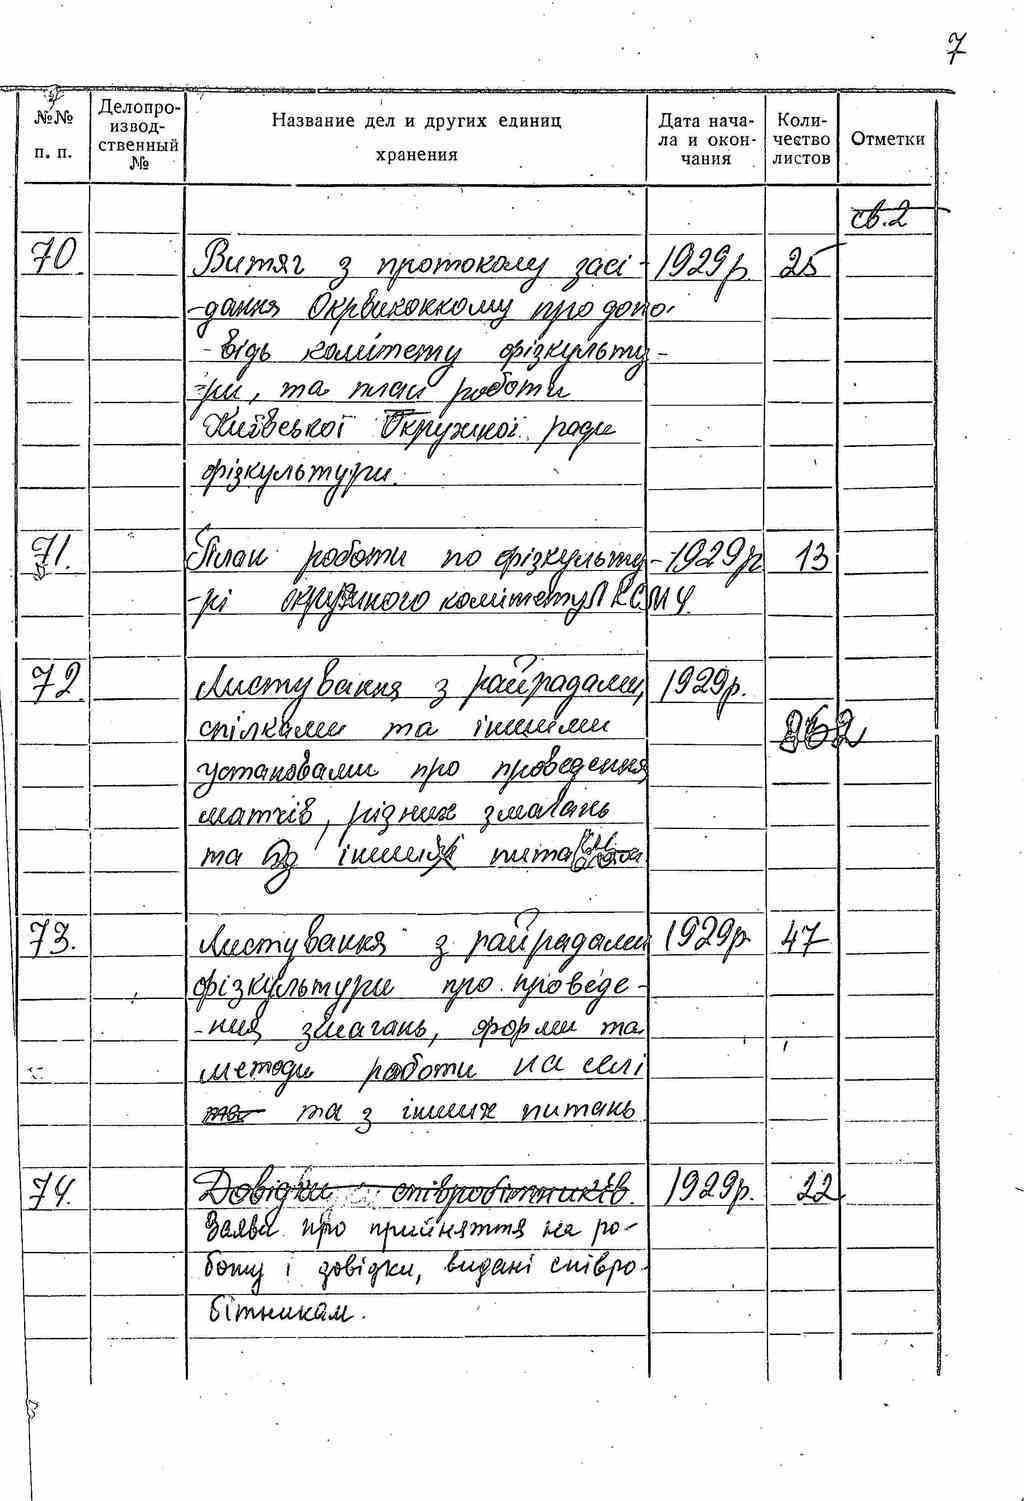 7
№№ п. п.
Делопро-извод-ственный №
Название дел и других единиц хранения
Дата нача-ла и окон-чания
Коли-чество листов
Отметки
св.2
70 Витяг з протоколу засі- 1929р 25
-дання Окрвиконкому про допо-
-відь комітету фізкульту-
-ри, та план роботи
Київської Окружної ради
фізкультури.
71. План роботи по фізкульту- 1929р 13
-рі окружного комітету ЛКСМУ.
72. Листування з райрадами, 1929р.
спілками та іншими 252
установами про проведення
матчів, різних змагань
та з інших
73. Листування з райрадами 1929р 47
фізкультури про проведе-
-ння змагань, форми та
методи роботи на селі
та з інших питань
74. Довідки співробітників. 1929р. 22
Заява про прийняття на ро-
боту і довідки, видані співро-
бітникам.